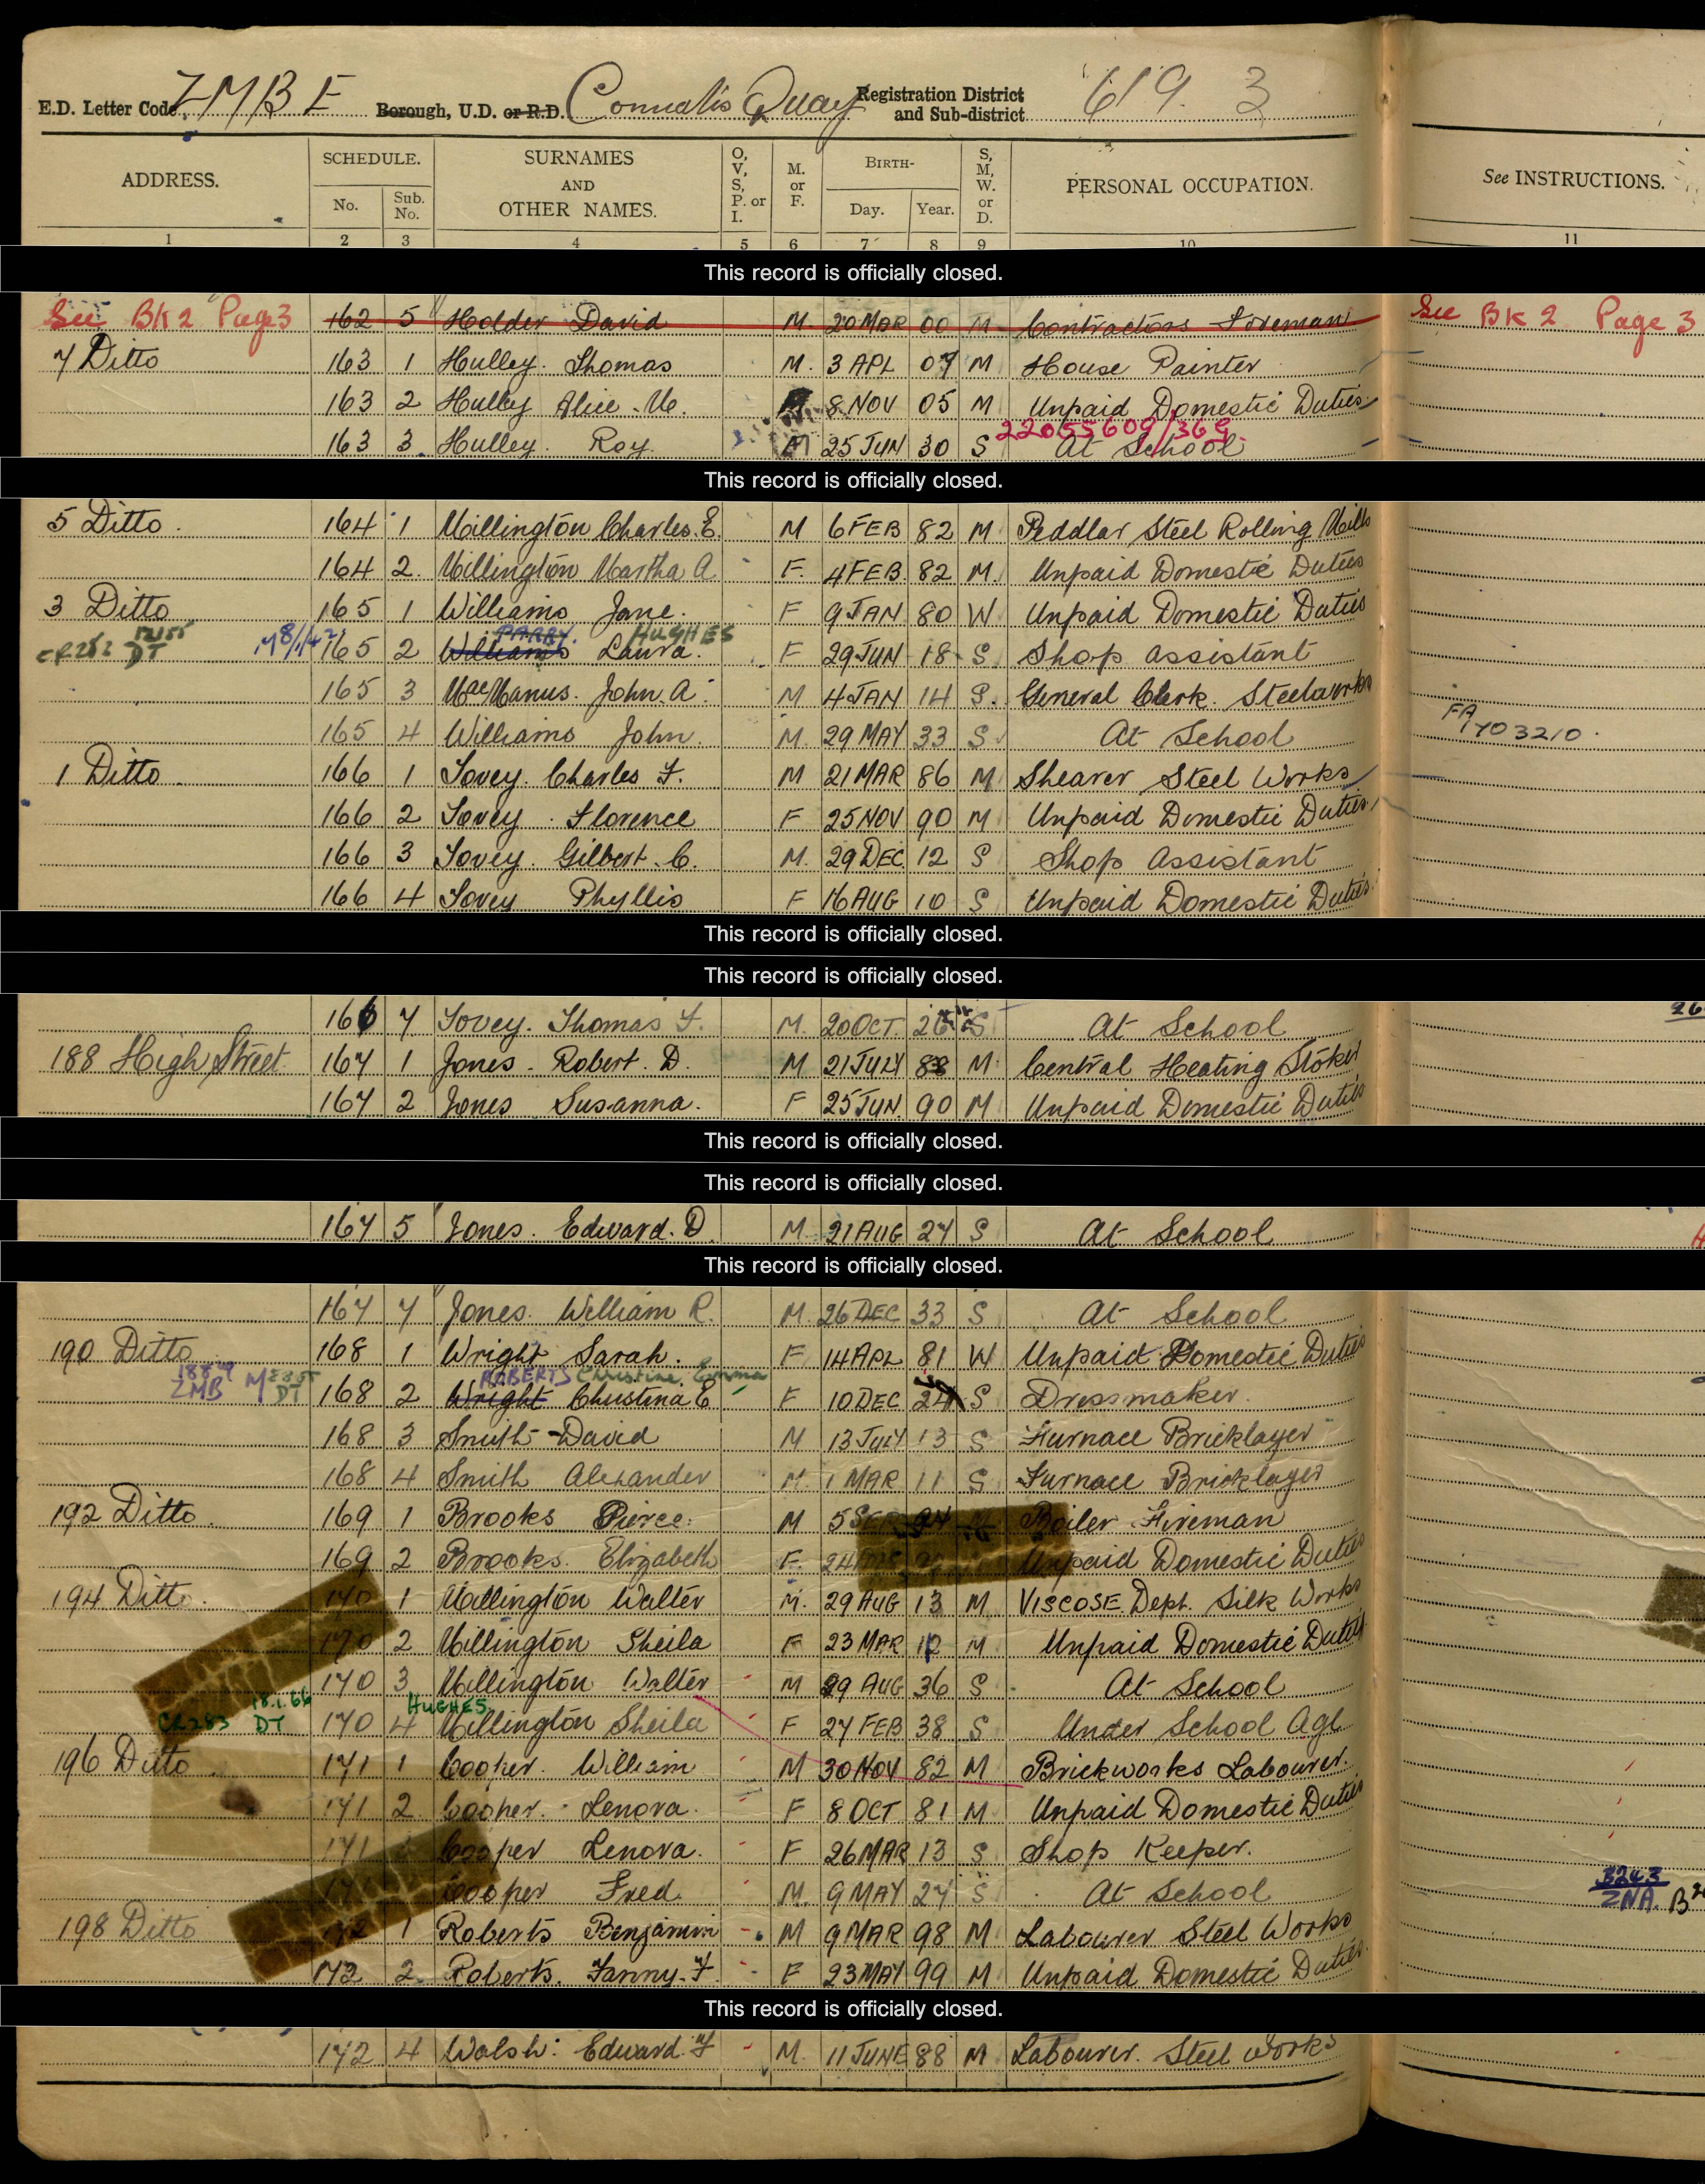 E.D. Letter Code ZMBE Borough, U.D. or R.D. Connahs Quay Registration District and Sub-district 619. 3
ADDRESS. SCHEDULE. No. Sub. No. SURNAMES AND OTHER NAMES. O, V, S, P. or I. M. or F. BIRTH- Day. Year. S, M, W. or D. PERSONAL OCCUPATION. See INSTRUCTIONS.
1 2 3 4 5 6 7 8 9 10 11
This record is officially closed.
See BK 2 Page 3 162 5 Holder David M. 20 MAR 00 M Contractors Foreman See BK 2 Page 3
7 Ditto 163 1 Hulley. Thomas M. 3 APL 07 M House Painter
163 2 Hulley Alice. M. 8 NOV 05 M Unpaid Domestic Duties
22055609/369
163 3 Hulley. Roy. M 25 JUN 30 S At School
This record is officially closed.
5 Ditto. 164 1 Millington Charles. E. M 6 FEB 82 M Peddlar Steel Rolling Mills
164 2. Millington Martha A F. 4 FEB 82 M. Unpaid Domestic Duties
3 Ditto 165 1 Williams Jane. F 9 JAN 80 W Unpaid Domestic Duties
PARRY. HUGHES
CR282 DT 165 2 Williams Laura. F 29 JUN 18 S Shop Assistant
165 3 MacManus. John. A. M 4 JAN 14 S. General Clerk. Steelworks
165 4 Williams John. M. 29 MAY 33 S At School FA 703210.
1 Ditto. 166 1 Tovey. Charles F. M 21 MAR 86 M Shearer Steel Works
166 2 Tovey. Florence F 25 NOV 90 M Unpaid Domestic Duties
166 3 Tovey. Gilbert. C. M. 29 DEC 12 S Shop Assistant
166 4 Tovey Phyllis F 16 AUG 10 S Unpaid Domestic Duties
This record is officially closed.
This record is officially closed.
166 7 Tovey. Thomas F. M. 20 OCT. 26 S At School
188 High Street. 167 1 Jones. Robert. D. M 21 JULY 88 M. Central Heating Stoker
167 2 Jones Susanna. F 25 JUN 90 M Unpaid Domestic Duties
This record is officially closed.
This record is officially closed.
167 5 Jones. Edward. D. M. 21 AUG 27 S At School
This record is officially closed.
167 7 Jones. William R. M. 26 DEC 33 S At School
190 Ditto 168 1 Wright Sarah. F 14 APL 81 W Unpaid Domestic Duties
ZMB M DT ROBERTS Christine Emma
168 2 Wright Christina E F 10 DEC 24 S Dressmaker.
168 3 Smith David M 13 JULY 13 S Furnace Bricklayer
168 4 Smith Alexander M. 1 MAR 11 S Furnace Bricklayer
192 Ditto. 169 1 Brooks Pierce. M 5 SEP 94 M Boiler Fireman
169 2 Brooks. Elizabeth F. 24 Unpaid Domestic Duties
194 Ditto. 170 1 Millington Walter M. 29 AUG 13 M VISCOSE Dept. Silk Works
170 2 Millington Sheila F 23 MAR 12 M Unpaid Domestic Duties
170 3 Millington Walter M 29 AUG 36 S At School
CR283 18.1.66 DT HUGHES
170 4 Millington Sheila F 27 FEB 38 S Under School Age
196 Ditto. 171 1 Cooper. William M 30 NOV 82 M Brickworks Labourer.
171 2 Cooper. Lenora. F 8 OCT 81 M Unpaid Domestic Duties
171 Cooper Lenora. F 26 MAR 13 S Shop Keeper.
Cooper Fred M. 9 MAY 27 S At School 3243 ZNA. B
198 Ditto 172 1 Roberts Benjamin M 9 MAR 98 M Labourer Steel Works
172 2. Roberts. Fanny. F. F 23 MAY 99 M Unpaid Domestic Duties
This record is officially closed.
172 4 Walsh. Edward. F M. 11 JUNE 88 M Labourer. Steel Works